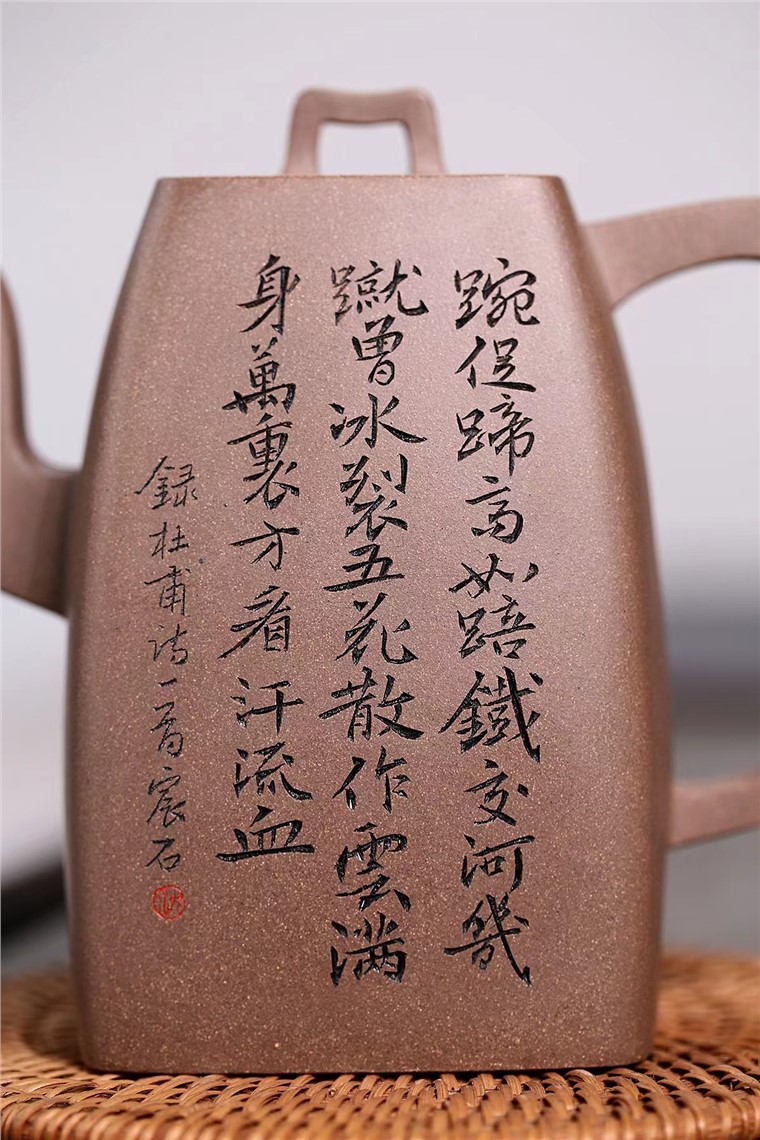 踠促蹄高如踣鐵交河幾
蹴曾冰裂五花散作雲满
身萬裏方看汗流血
録杜甫诗一首宸石